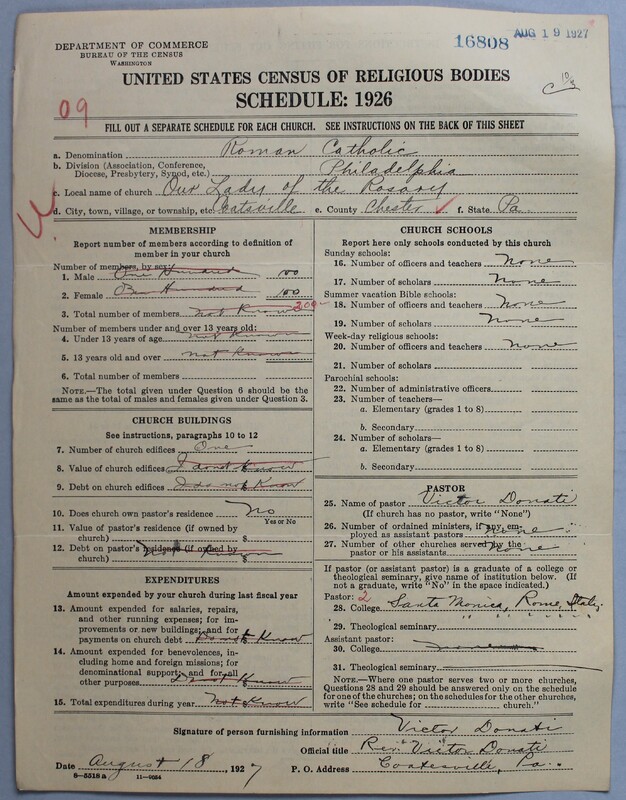 16808 AUG 19 1927
DEPARTMENT OF COMMERCE
BUREAU OF THE CENSUS
WASHINGTON
UNITED STATES CENSUS OF RELIGIOUS BODIES
SCHEDULE: 1926
09
FILL OUT A SEPARATE SCHEDULE FOR EACH CHURCH. SEE INSTRUCTIONS ON THE BACK OF THIS SHEET
a. Denomination Roman Catholic
b. Division (Association, Conference, Diocese, Presbytery, Synod, etc.) Philadelphia
c. Local name of church Our Lady of the Rosary
d. City, town, village, or township, etc. Coatsville e. County Chester f. State Pa.
MEMBERSHIP
Report number of members according to definition of
member in your church
Number of members, by sex:
1. Male One Hundred 100
2. Female One Hundred 100
3. Total number of members not Know 200
Number of members under and over 13 years old:
4. Under 13 years of age not Known
5. 13 years old and over not Known
6. Total number of members
NOTE.—The total given under Question 6 should be
same as the total of males and females given under Question 3.
CHURCH BUILDINGS
See instructions, paragraphs 10 to 12
7. Number of church edifices One
8. Value of church edifices I do not Know
9. Debt on church edifices I do not Know
10. Does church own pastor's residence? No
Yes or No
11. Value of pastor's residence (if owned by
church) $
12. Debt on pastor's residence (if owned by
church) $ Not Known
EXPENDITURES
Amount expended by your church during last fiscal year
13. Amount expended for salaries, repairs,
and other running expenses; for im-
provements or new buildings; and for
payments on church debt Do not Know
14. Amount expended for benevolences, in-
cluding home and foreign missions; for
denominational support; and for all
other purposes Do not Know
15. Total expenditures during year Not Know
CHURCH SCHOOLS
Report here only schools conducted by this church
Sunday schools:
16. Number of officers and teachers None
17. Number of scholars None
Summer vacation Bible schools:
18. Number of officers and teachers None
19. Number of scholars None
Week-day religious schools:
20. Number of officers and teachers None
21. Number of scholars
Parochial schools:
22. Number of administrative officers
23. Number of teachers—
a. Elementary (grades 1 to 8)
b. Secondary
24. Number of scholars—
a. Elementary (grades 1 to 8)
b. Secondary
PASTOR
25. Name of pastor Victor Donati
(If church has no pastor, write "None")
26. Number of ordained ministers, if any, em-
ployed as assistant pastors None
27. Number of other churches served by the
pastor or his assistants None
If pastor (or assistant pastor) is a graduate of a college or
theological seminary, give name of institution below. (If
not a graduate, write "No" in the space indicated.)
Pastor: 2
28. College Santa Monica, Rome, Italy
29. Theological seminary " " " "
Assistant pastor:
30. College none
31. Theological seminary
NOTE.—Where one pastor serves two or more churches,
Questions 28 and 29 should be answered only on the schedule
for one of the churches; on the schedules for the other churches,
write "See schedule for church."
Signature of person furnishing information Victor Donati
Official title Rev. Victor Donati
Date August 18, 1927 P. O. Address Coatesville, Pa.
8-5518a 11-9064